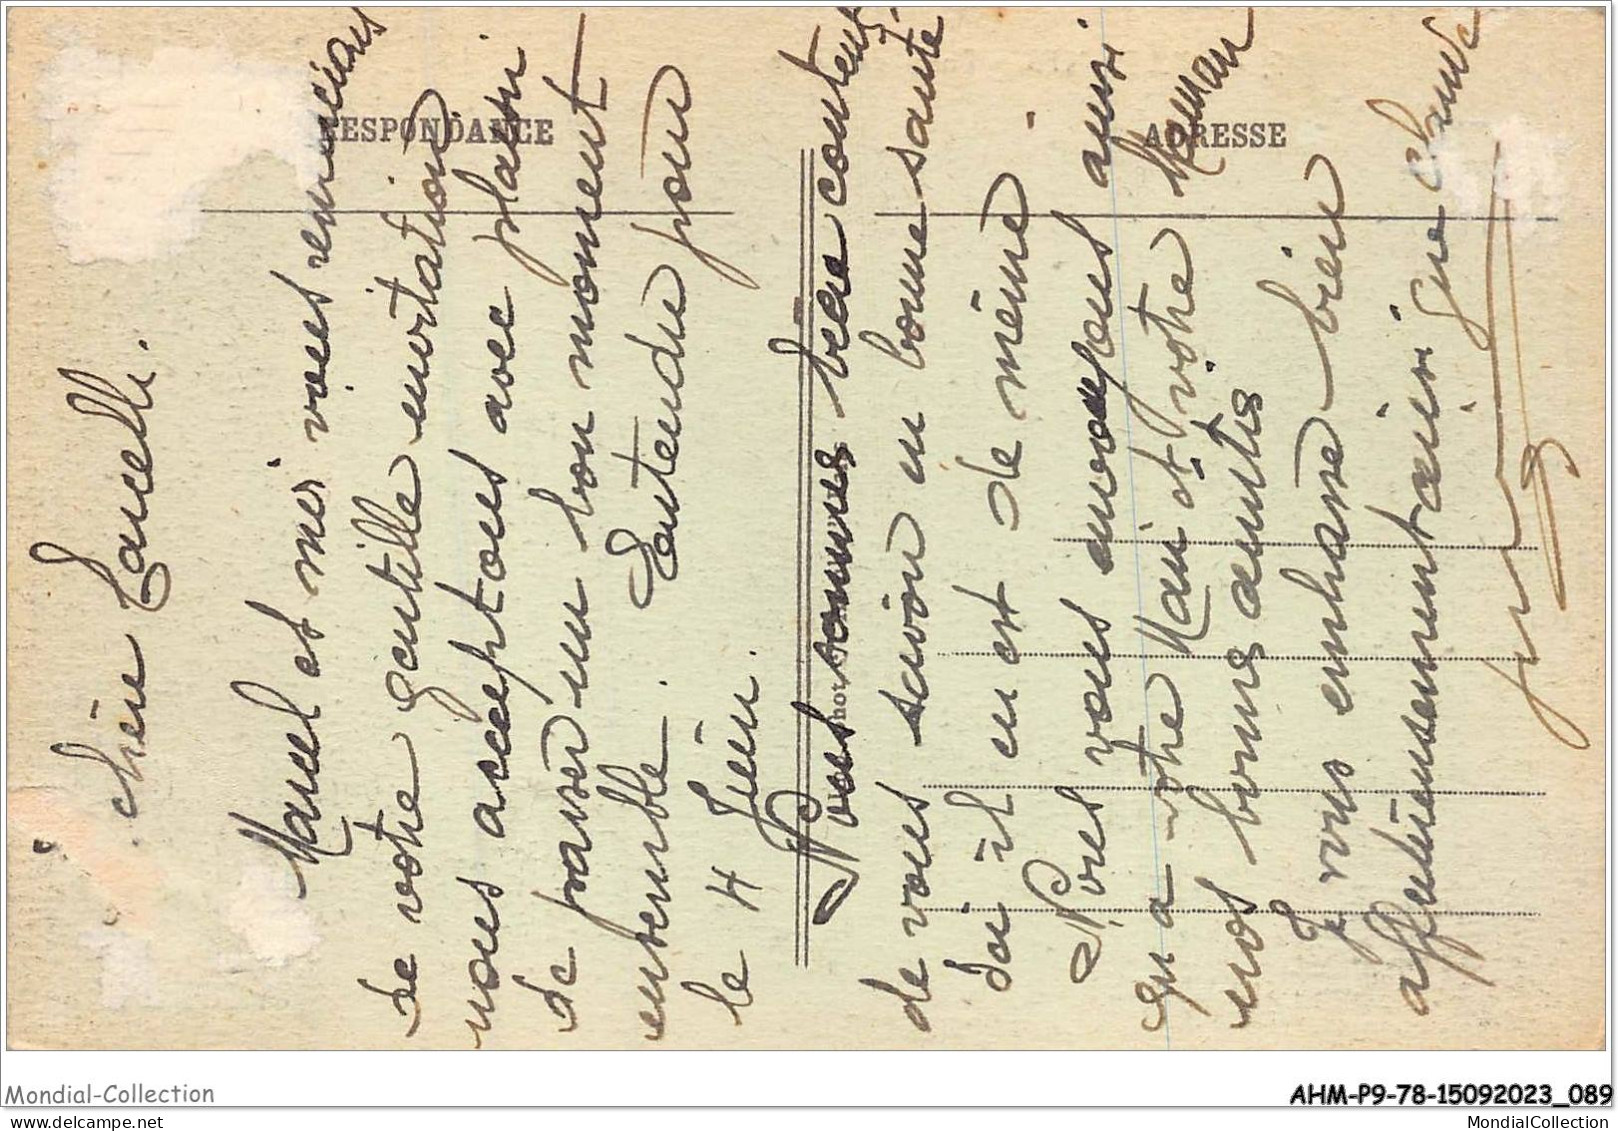 chère Lancelle.
Marcel et moi vous remercions
de votre gentille invitation
nous acceptons avec plaisir
de passer un bon moment
ensemble. Entendu pour
le 4 Juin.
Nous sommes bien contents
de vous savoir en bonne santé
ici il en est de même.
Nous vous envoyons ainsi
qu'a votre Mari et votre Maman
nos bonnes amitiés
Je vous embrasse bien
affectueusement ainsi que
RESPONDANCE
ADRESSE
Mondial-Collection
AHM-P9-78-15092023_089
mondial-collection.com
MondialCollection.com